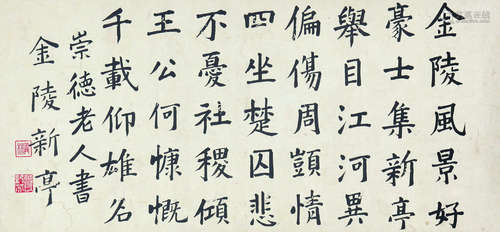 金陵風景好
豪士集新亭
舉目江河異
偏傷周顗情
四坐楚囚悲
不憂社稷傾
王公何慷慨
千載仰雄名
崇德老人書
金陵新亭